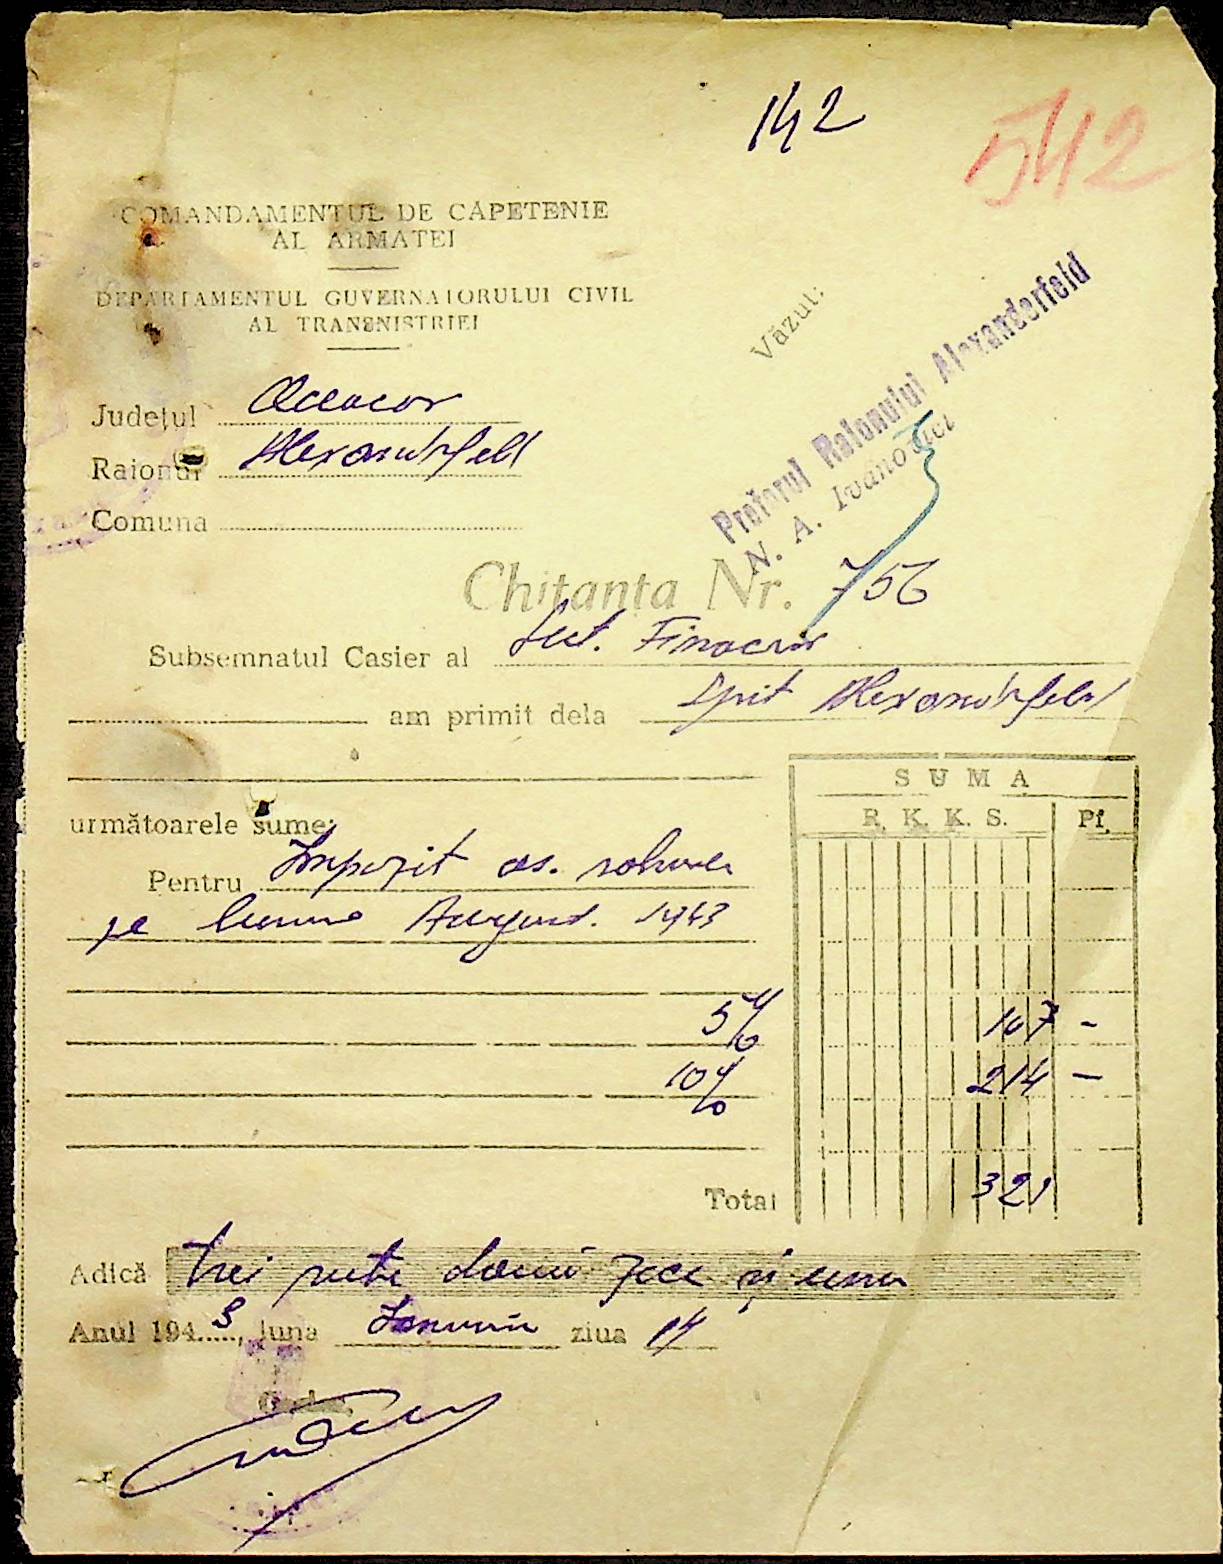 142
542
COMANDAMENTUL DE CAPETENIE
AL ARMATEI
DEPARTAMENTUL GUVERNATORULUI CIVIL
AL TRANSNISTRIEI
Văzut:
Pretorul Raionului Alexanderfeld
N. A. Ivanovici
Județul Oceacov
Raionul Alexandrfeld
Comuna
Chitanta Nr. 756
Subsemnatul Casier al Sect. Finaciar
am primit dela Spit Alexandrfeld
SUMA
R. K. K. S. Pf.
următoarele sume:
Pentru Impozit as.
pe luna August. 1943
5% 107 -
10% 214 -
Total 321
Adică trei sute două zece și unu
Anul 1943, luna Ianuarie ziua 14